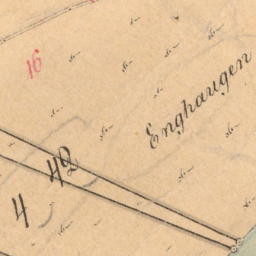 16
Enghaugen
42
4